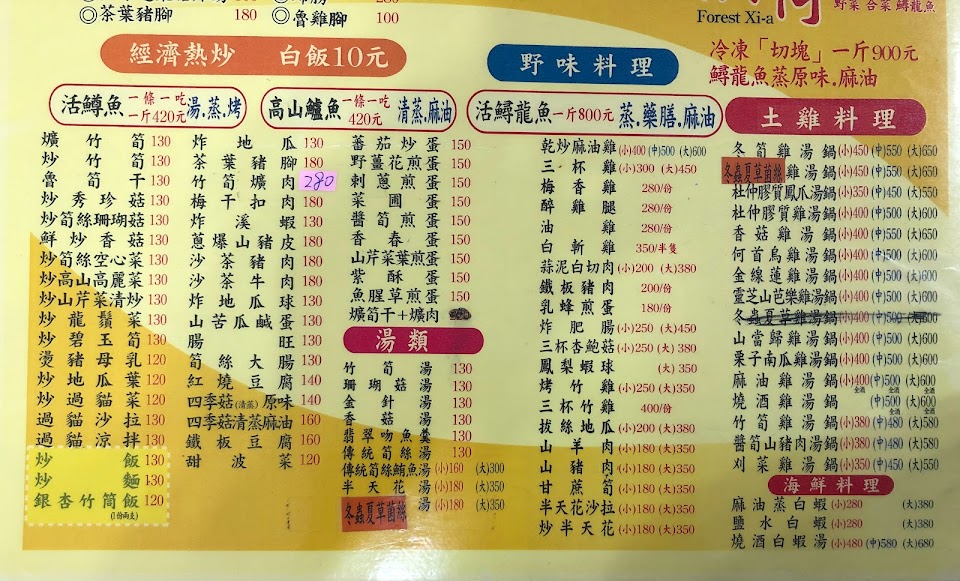 ◎茶葉豬腳 180 ◎魯雞腳 100
Forest Xi-a
野菜 合菜 鱘龍魚
冷凍「切塊」一斤900元
鱘龍魚蒸原味.麻油
經濟熱炒 白飯10元
活鱒魚 一條一吃 一斤420元 湯.蒸.烤
高山鱸魚 一條一吃 420元 清蒸.麻油
壙竹筍 130
炒竹筍 130
魯筍干 130
炒秀珍菇 130
炒筍絲珊瑚菇 130
鮮炒香菇 130
炒筍絲空心菜 130
炒高山高麗菜 130
炒山芹菜清炒 130
炒龍鬚菜 130
炒碧玉筍 130
燙豬母乳 120
炒地瓜葉 120
炒過貓菜 120
過貓沙拉 130
過貓涼拌 130
炒飯 130
炒麵 130
銀杏竹筒飯 120
(1份兩支)
炸地瓜 130
茶葉豬腳 180
竹筍壙肉 280
梅干扣肉 180
炸溪蝦 130
蔥爆山豬皮 180
沙茶豬肉 180
沙茶牛肉 180
炸地瓜球 130
山苦瓜鹹蛋 130
腸旺 130
筍絲大腸 130
紅燒豆腐 140
四季菇(清蒸)原味 140
四季菇清蒸麻油 160
鐵板豆腐 160
甜波菜 120
番茄炒蛋 150
野薑花煎蛋 150
刺蔥煎蛋 150
菜圃蛋 150
醬筍煎蛋 150
香春蛋 150
山芹菜葉煎蛋 150
紫酥蛋 150
魚腥草煎蛋 150
壙筍干+壙肉
湯類
竹筍湯 130
珊瑚菇湯 130
金針湯 130
香菇湯 130
翡翠吻魚羹 130
傳統筍絲湯 130
傳統筍絲鮪魚湯 (小)160 (大)300
半天花湯 (小)180 (大)350
冬蟲夏草菌絲湯 (小)180 (大)350
野味料理
活鱘龍魚 一斤800元 蒸.藥膳.麻油
乾炒麻油雞 (小)400 (中)500 (大)600
三杯雞 (小)300 (大)450
梅香雞 280/份
醉雞腿 280/份
油雞 280/份
白斬雞 350/半隻
蒜泥白切肉 (小)200 (大)380
鐵板豬肉 200/份
乳蜂煎蛋 180/份
炸肥腸 (小)250 (大)450
三杯杏鮑菇 (小)250 (大)380
鳳梨蝦球 (大)350
烤竹雞 (小)250 (大)350
三杯竹雞 400/份
拔絲地瓜 (小)200 (大)380
山羊肉 (小)180 (大)350
山豬肉 (小)180 (大)350
甘蔗筍 (小)180 (大)350
半天花沙拉 (小)180 (大)350
炒半天花 (小)180 (大)350
土雞料理
冬筍雞湯鍋 (小)450 (中)550 (大)650
冬蟲夏草菌絲雞湯鍋 (小)450 (中)550 (大)650
杜仲膠質鳳爪湯鍋 (小)350 (中)450 (大)550
杜仲膠質雞湯鍋 (小)400 (中)500 (大)600
香菇雞湯鍋 (小)400 (中)500 (大)600
何首烏雞湯鍋 (小)400 (中)500 (大)600
金線蓮雞湯鍋 (小)400 (中)500 (大)600
靈芝山芭樂雞湯鍋 (小)400 (中)500 (大)600
冬蟲夏草雞湯鍋 (小)400 (中)500 (大)600
山當歸雞湯鍋 (小)400 (中)500 (大)600
栗子南瓜雞湯鍋 (小)400 (中)500 (大)600
麻油雞湯鍋 (小)400 全酒 (中)500 全酒 (大)600 全酒
燒酒雞湯鍋 (中)500 全酒 (大)600 全酒
竹筍雞湯鍋 (小)380 (中)480 (大)580
醬筍山豬肉湯鍋 (小)380 (中)480 (大)580
刈菜雞湯鍋 (小)350 (中)450 (大)550
海鮮料理
麻油蒸白蝦 (小)280 (大)380
鹽水白蝦 (小)280 (大)380
燒酒白蝦湯 (小)480 (中)580 (大)680